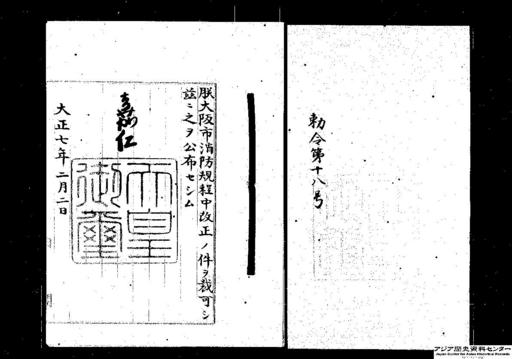 勅令第十八号
朕大阪市消防規程中改正ノ件ヲ裁可シ
茲ニ之ヲ公布セシム
嘉仁
天皇
御璽
大正七年二月二日
アジア歴史資料センター
Japan Center for Asian Historical Records